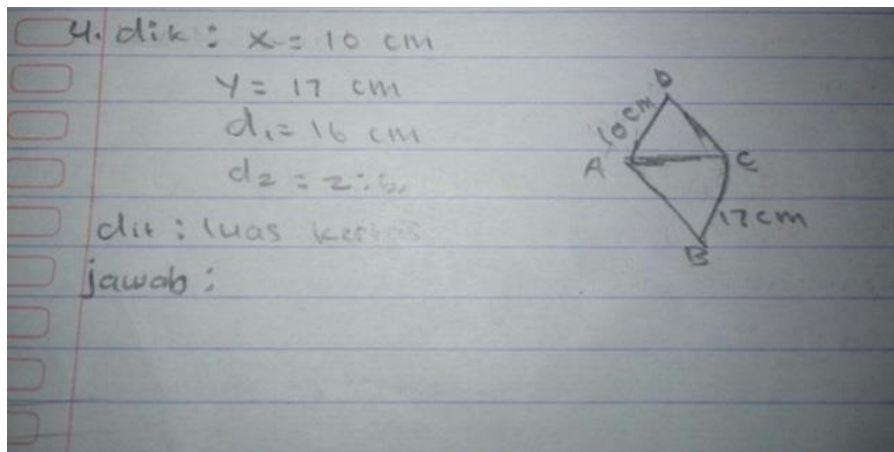 4. dik : x = 10 cm
y = 17 cm
d₁ = 16 cm
d₂ =
dit : luas kertas
jawab :
D
10 cm
A
C
17 cm
B